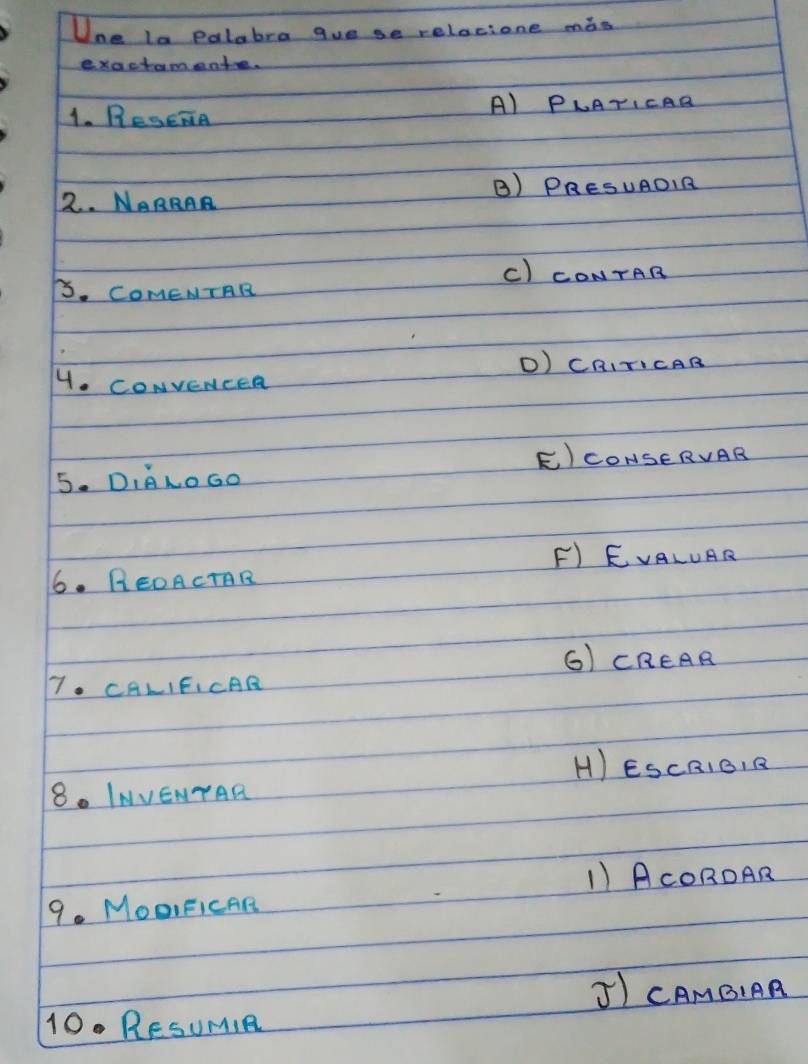 Une la palabra que se relacione más
exactamente.
1. RESEÑA
A) PLATICAR
2. NARRAR
B) PRESUADIR
3. COMENTAR
C) CONTAR
4. CONVENCER
D) CRITICAR
5. DIÁLOGO
E) CONSERVAR
6. REDACTAR
F) EVALUAR
7. CALIFICAR
G) CREAR
8. INVENTAR
H) ESCRIBIR
9. MODIFICAR
I) ACORDAR
10. RESUMIR
J) CAMBIAR